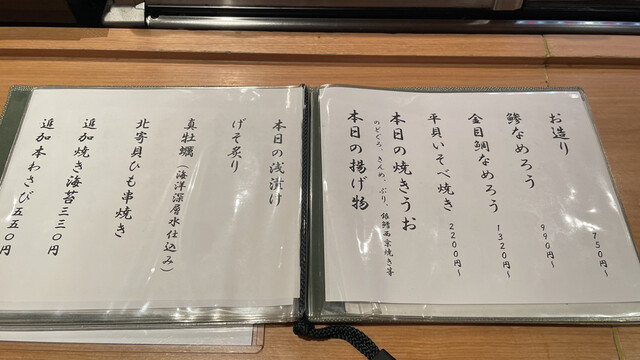 お造り 750円〜
鯵なめろう 990円〜
金目鯛なめろう 1320円〜
平貝いそべ焼き 2200円〜
本日の焼きうお
のどぐろ、きんめ、ぶり、銀鱈西京焼き等
本日の揚げ物
本日の浅漬け
げそ炙り
真牡蠣(海洋深層水仕込み)
北寄貝ひも串焼き
追加焼き海苔三三〇円
追加本わさび五五〇円